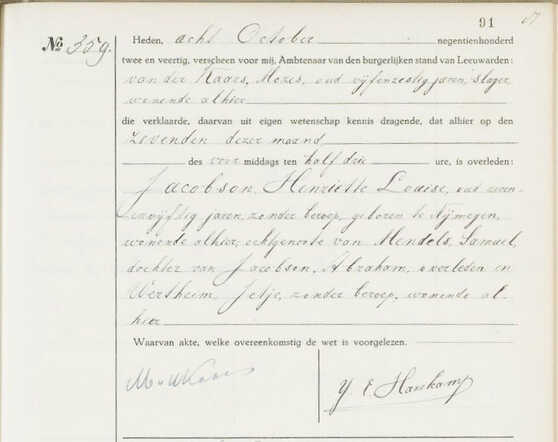 91
No 359.
Heden, acht October negentienhonderd
twee en veertig, verscheen voor mij, Ambtenaar van den burgerlijken stand van Leeuwarden:
van der Kaars, Mozes, oud vijfenzestig jaren, slager
wonende alhier
die verklaarde, daarvan uit eigen wetenschap kennis dragende, dat alhier op den
zevenden dezer maand
des voor middags ten half drie ure, is overleden:
Jacobson, Henriette Louise, oud zeven-
envijftig jaren, zonder beroep, geboren te Nijmegen,
wonende alhier, echtgenoote van Mendels, Samuel,
dochter van Jacobson, Abraham, overleden en
Wertheim, Jetje, zonder beroep, wonende al-
hier
Waarvan akte, welke overeenkomstig de wet is voorgelezen.